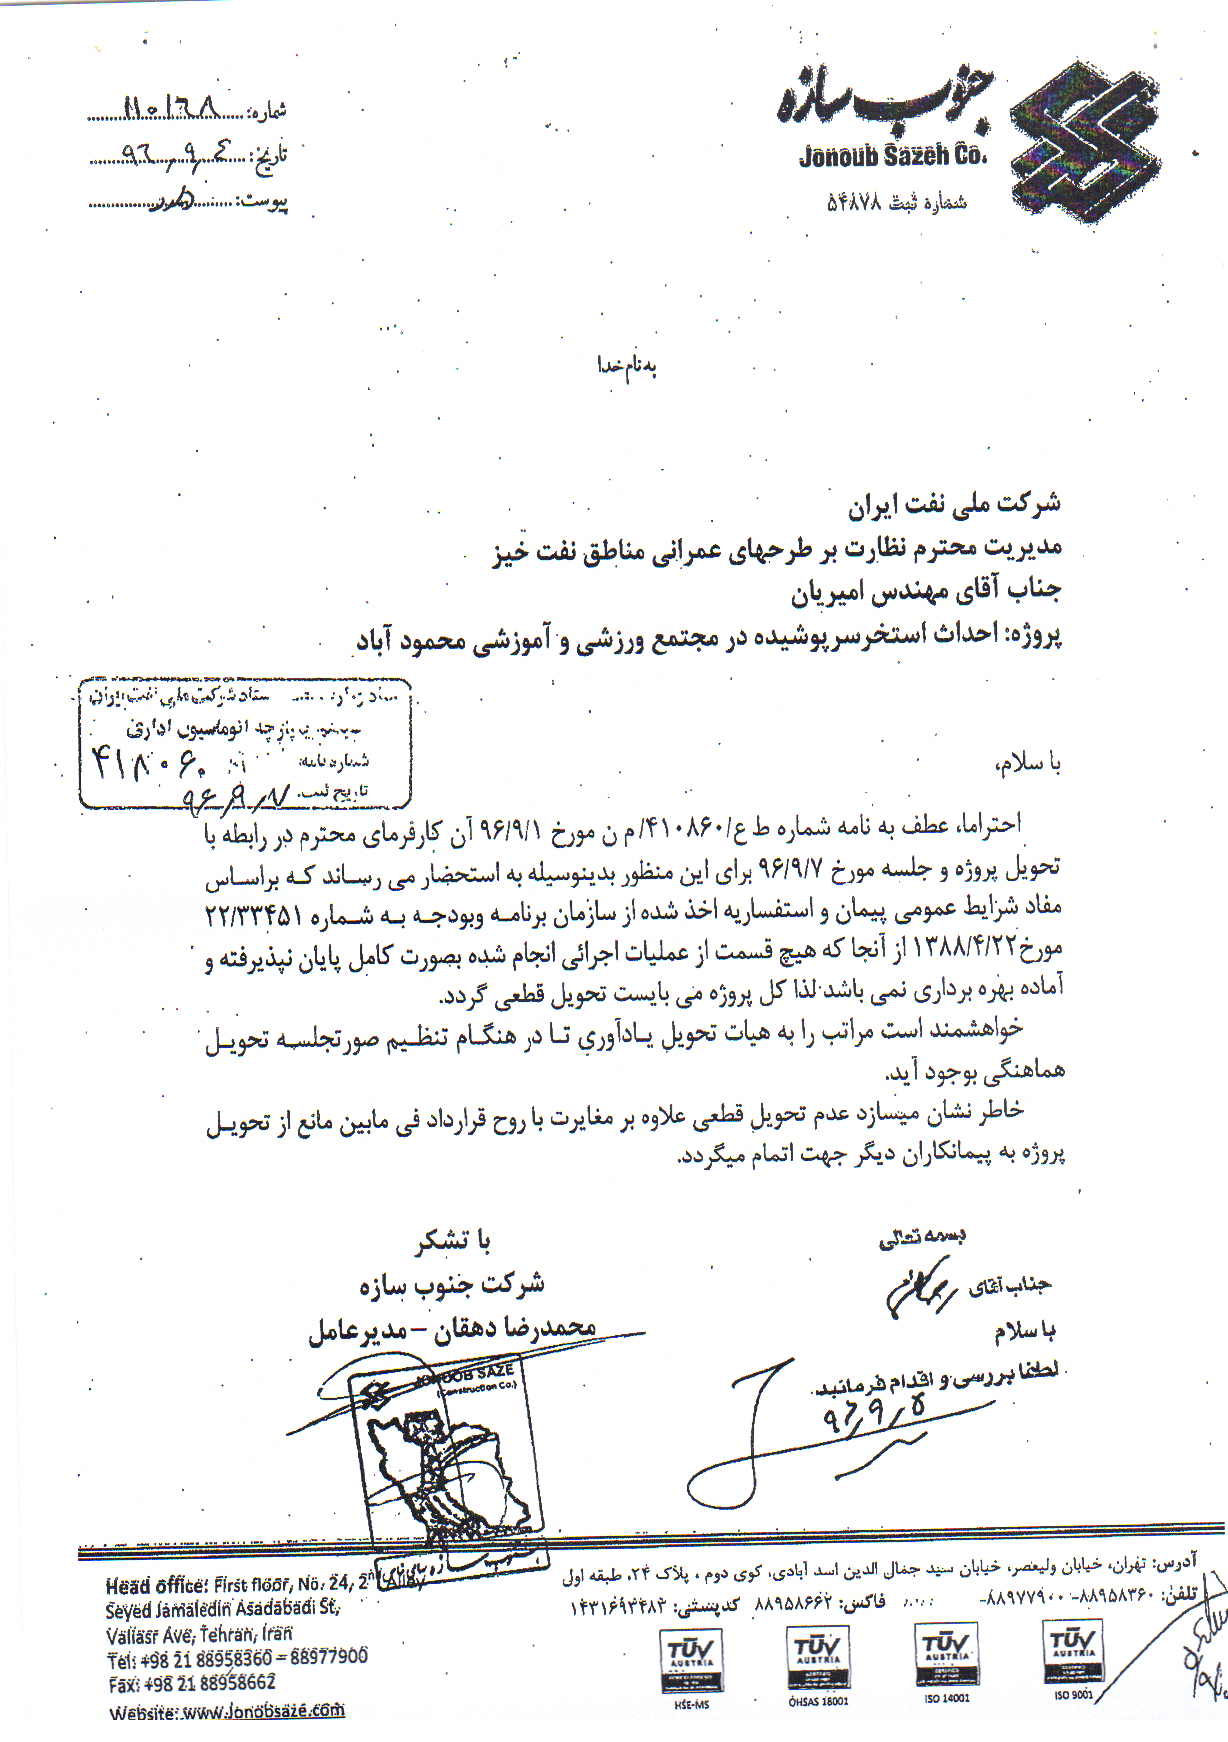 جنوب سازه
Jonoub Sazeh Co.
شماره ثبت ۵۴۸۷۸
شماره: ۱۱۰۱۶۸
تاریخ: ۹۶,۹,۴
پیوست: ندارد
به نام خدا
شرکت ملی نفت ایران
مدیریت محترم نظارت بر طرحهای عمرانی مناطق نفت خیز
جناب آقای مهندس امیریان
پروژه: احداث استخرسرپوشیده در مجتمع ورزشی و آموزشی محمود آباد
ستاد شرکت ملی نفت ایران
یکپارچه اتوماسیون اداری
شماره نامه: ۴۱۸۰۶۰
تاریخ ثبت: ۹۶,۹,۷
با سلام،
احتراما، عطف به نامه شماره ط ع/۴۱۰۸۶۰/م ن مورخ ۹۶/۹/۱ آن کارفرمای محترم در رابطه با
تحویل پروژه و جلسه مورخ ۹۶/۹/۷ برای این منظور بدینوسیله به استحضار می رساند که براساس
مفاد شرایط عمومی پیمان و استفساریه اخذ شده از سازمان برنامه وبودجه به شماره ۲۲/۳۳۴۵۱
مورخ۱۳۸۸/۴/۲۲ از آنجا که هیچ قسمت از عملیات اجرائی انجام شده بصورت کامل پایان نپذیرفته و
آماده بهره برداری نمی باشد لذا کل پروژه می بایست تحویل قطعی گردد.
خواهشمند است مراتب را به هیات تحویل یادآوری تا در هنگام تنظیم صورتجلسه تحویل
هماهنگی بوجود آید.
خاطر نشان میسازد عدم تحویل قطعی علاوه بر مغایرت با روح قرارداد فی مابین مانع از تحویل
پروژه به پیمانکاران دیگر جهت اتمام میگردد.
با تشکر
شرکت جنوب سازه
محمدرضا دهقان – مدیرعامل
JONOOB SAZE
(Construction Co.)
بسمه تعالی
جناب آقای
با سلام
لطفا بررسی و اقدام فرمائید.
۹۶,۹,۵
آدرس: تهران، خیابان ولیعصر، خیابان سید جمال الدین اسد آبادی، کوی دوم ، پلاک ۲۴، طبقه اول
تلفن: ۸۸۹۵۸۳۶۰-۸۸۹۷۷۹۰۰- فاکس: ۸۸۹۵۸۶۶۲ کدپستی: ۱۴۳۱۶۹۴۴۸۴
Head office: First floor, No. 24, 2nd Alley
Seyed Jamaledin Asadabadi St,
Valiasr Ave, Tehran, Iran
Tel: +98 21 88958360 – 88977900
Fax: +98 21 88958662
Website: www.Jonobsaze.com
TÜV AUSTRIA
HSE-MS
TÜV AUSTRIA
OHSAS 18001
TÜV AUSTRIA
ISO 14001
TÜV AUSTRIA
ISO 9001